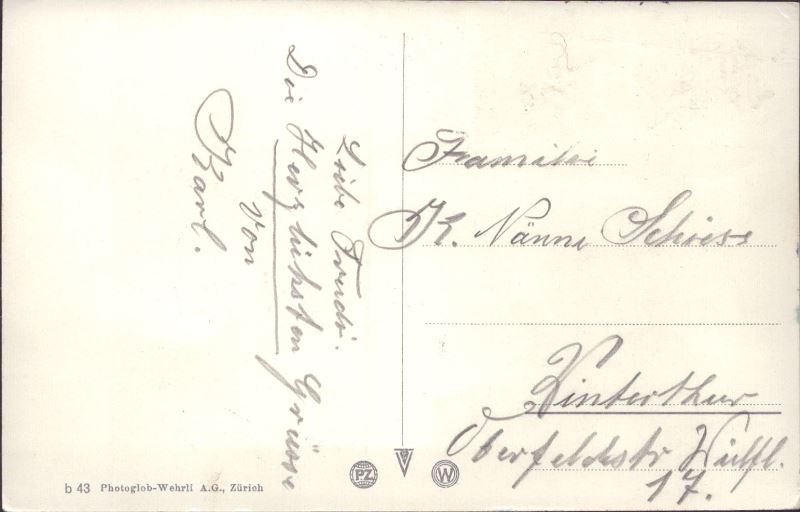 Liebe Trudi.
Die Herzlichsten Grüsse
von
Karl.
Familie
K. Nänni Schiess
Winterthur
Oberfeldstr Wülfl.
17.
PZ
W
b 43 Photoglob-Wehrli A.G., Zürich